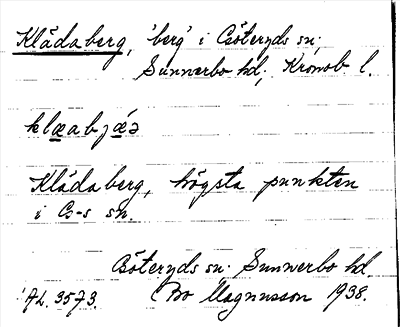 Klädaberg, 'berg' i Göteryds sn;
Sunnerbo hd, Kronob. l.
klæabjæ´ə
Klädaberg, högsta punkten
i G-s sn.
Göteryds sn. Sunnerbo hd.
AL. 3573. Bo Magnusson 1938.